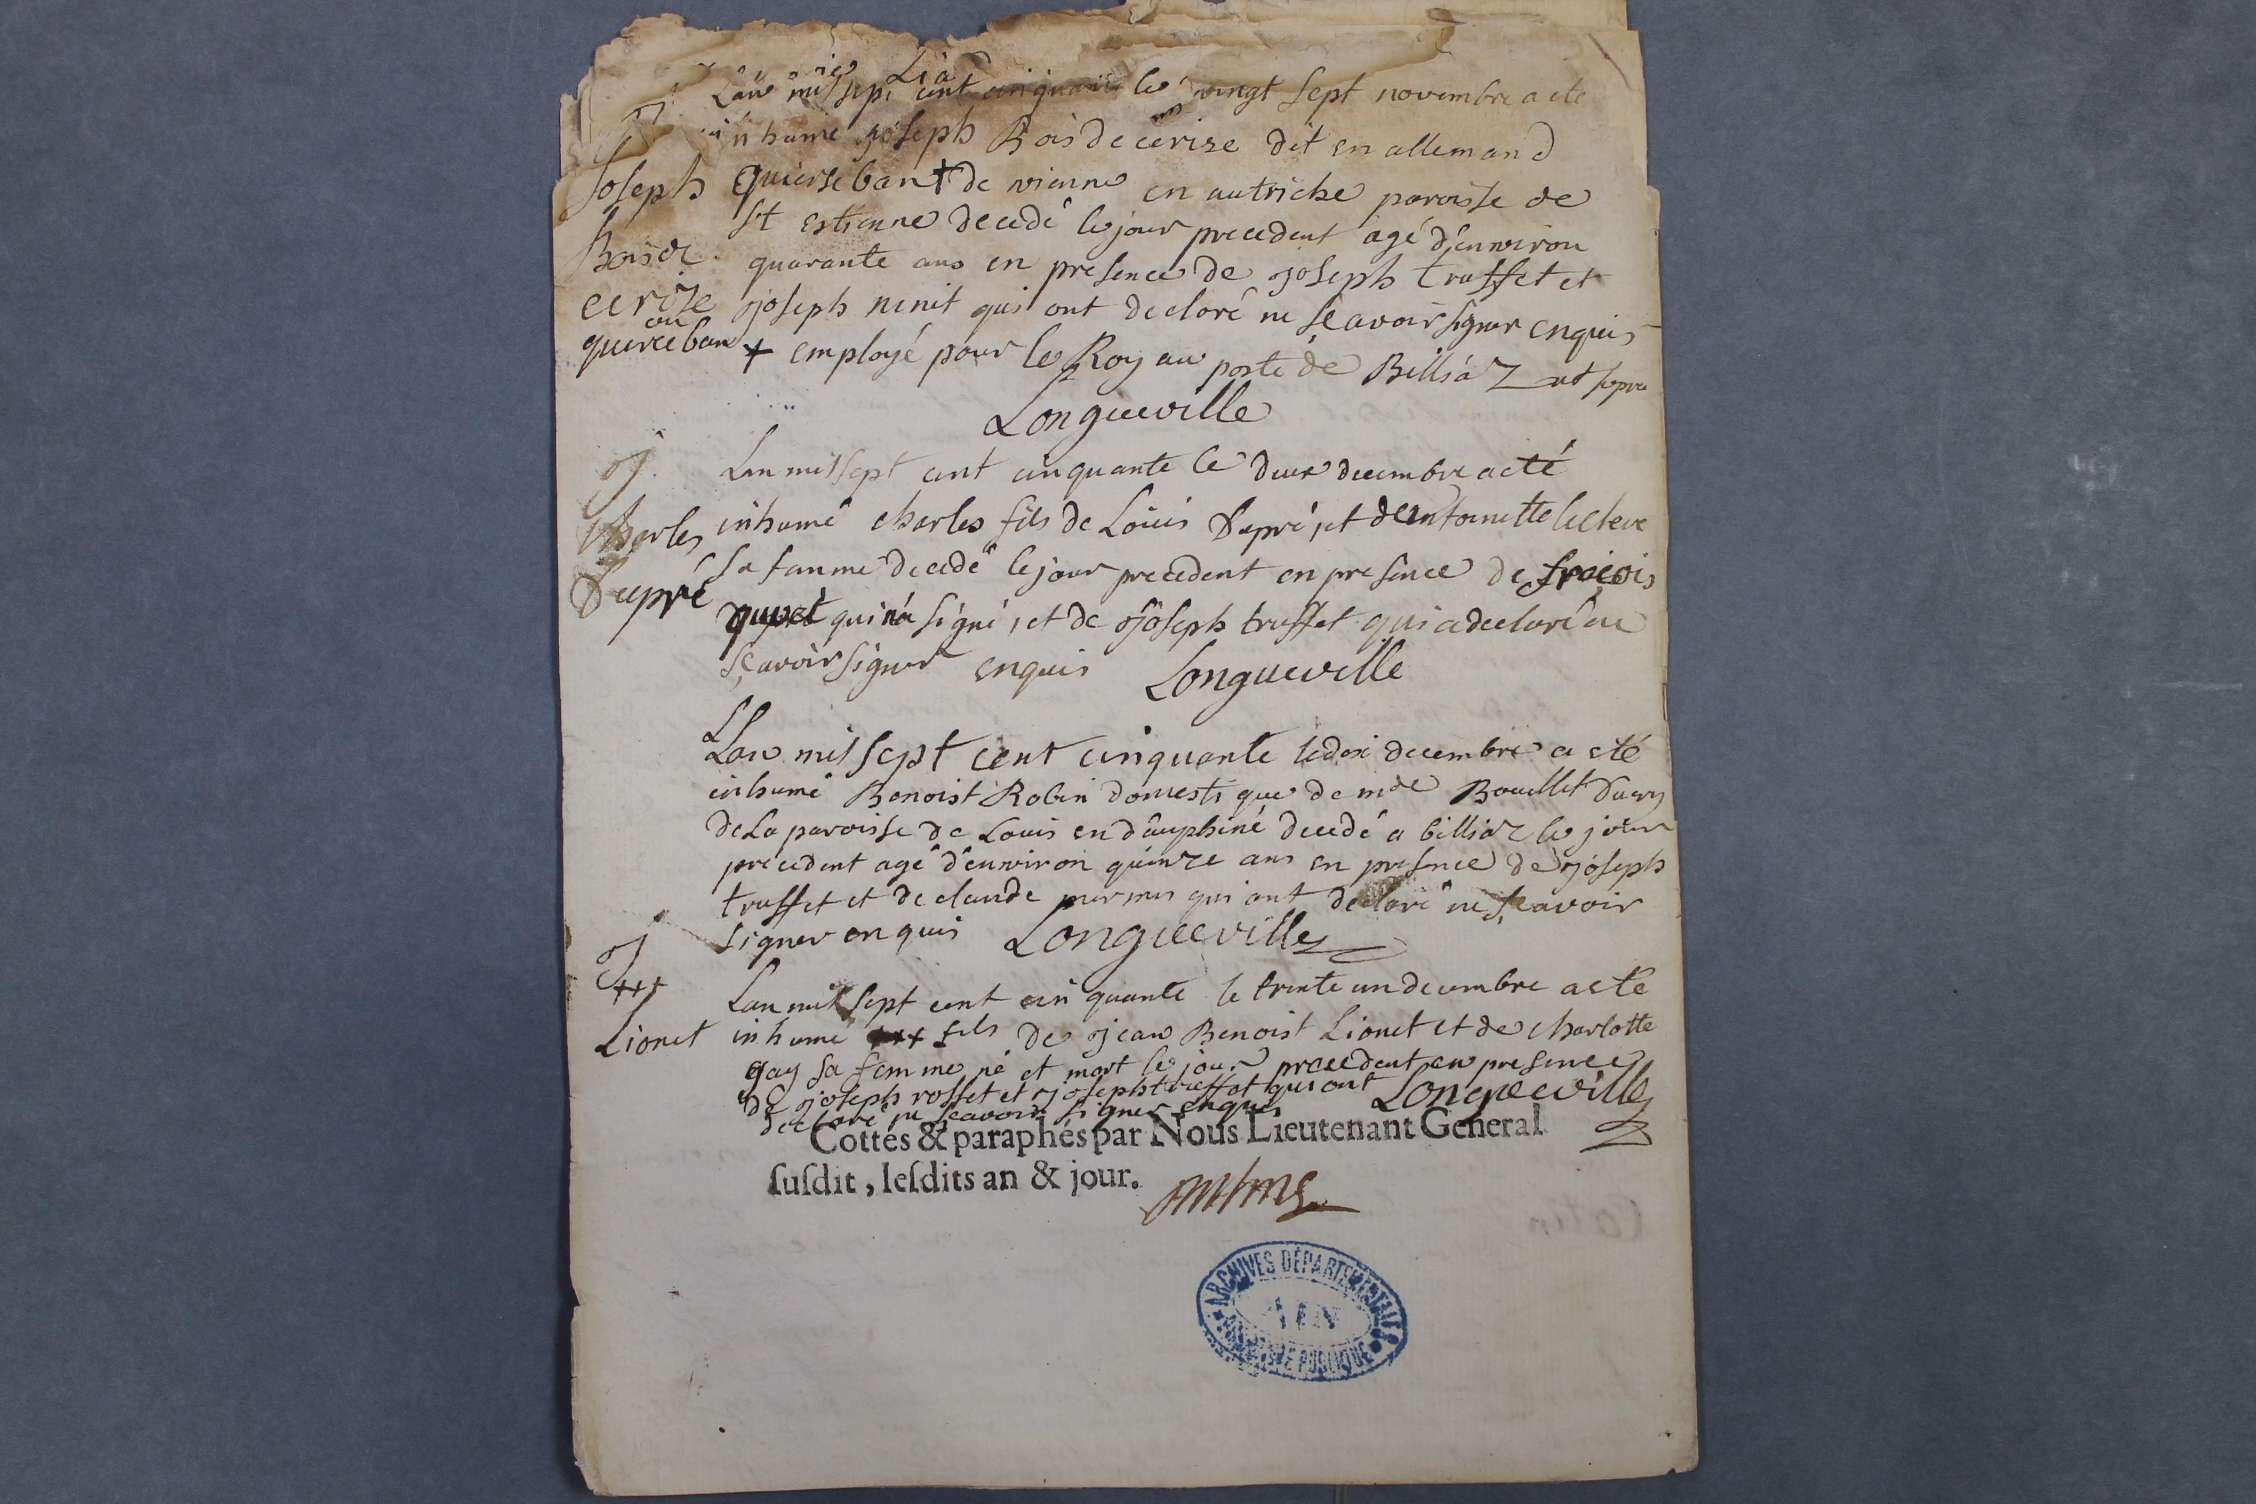 Lan mil sept cent cinquante le vingt sept novembre a ete
inhumé joseph Bois de cerize dit en allemand
Joseph
quierseban + de vienne en autriche paroisse de
St estienne decedé le jour precedent agé d'environ
Bois de
quarante ans en presence de joseph truffet et
cerize
joseph ninit qui ont decloré ne sçavoir signer enquis
ou
querceban
+ employé pour le Roy au poste de Billiaz ut supra
Longueville
Lan mil sept cent cinquante le deux decembre a eté
Charles
inhumé charles fils de Louis Dupré, et de antoinette
sa famme decedé le jour precedent en presence de frãçois
Dupré
qui n'a signé, et de joseph truffet qui a decloré ne
sçavoir signer enquis Longueville
Lan mil sept cent cinquante le dix decembre a eté
inhumé Benoist Robin domestique de mde Bouillet
de la paroisse de Louis en dauphiné decedé a billiaz le jour
precedent agé d'environ quinze ans en presence de joseph
truffet et de claude qui ont decloré ne sçavoir
signer enquis Longueville
+++
Lan mil sept cent cinquante le trente un decembre a eté
Lionet
inhumé +++ fils de jean Benoist Lionet et de charlotte
gay sa femme né et mort le jour precedent en presence
de joseph rosset et joseph truffet qui ont
decloré ne sçavoir signer enquis Longueville
Cottés & paraphés par Nous Lieutenant General
susdit, lesdits an & jour.
ARCHIVES DÉPARTEMENTALES
AIN